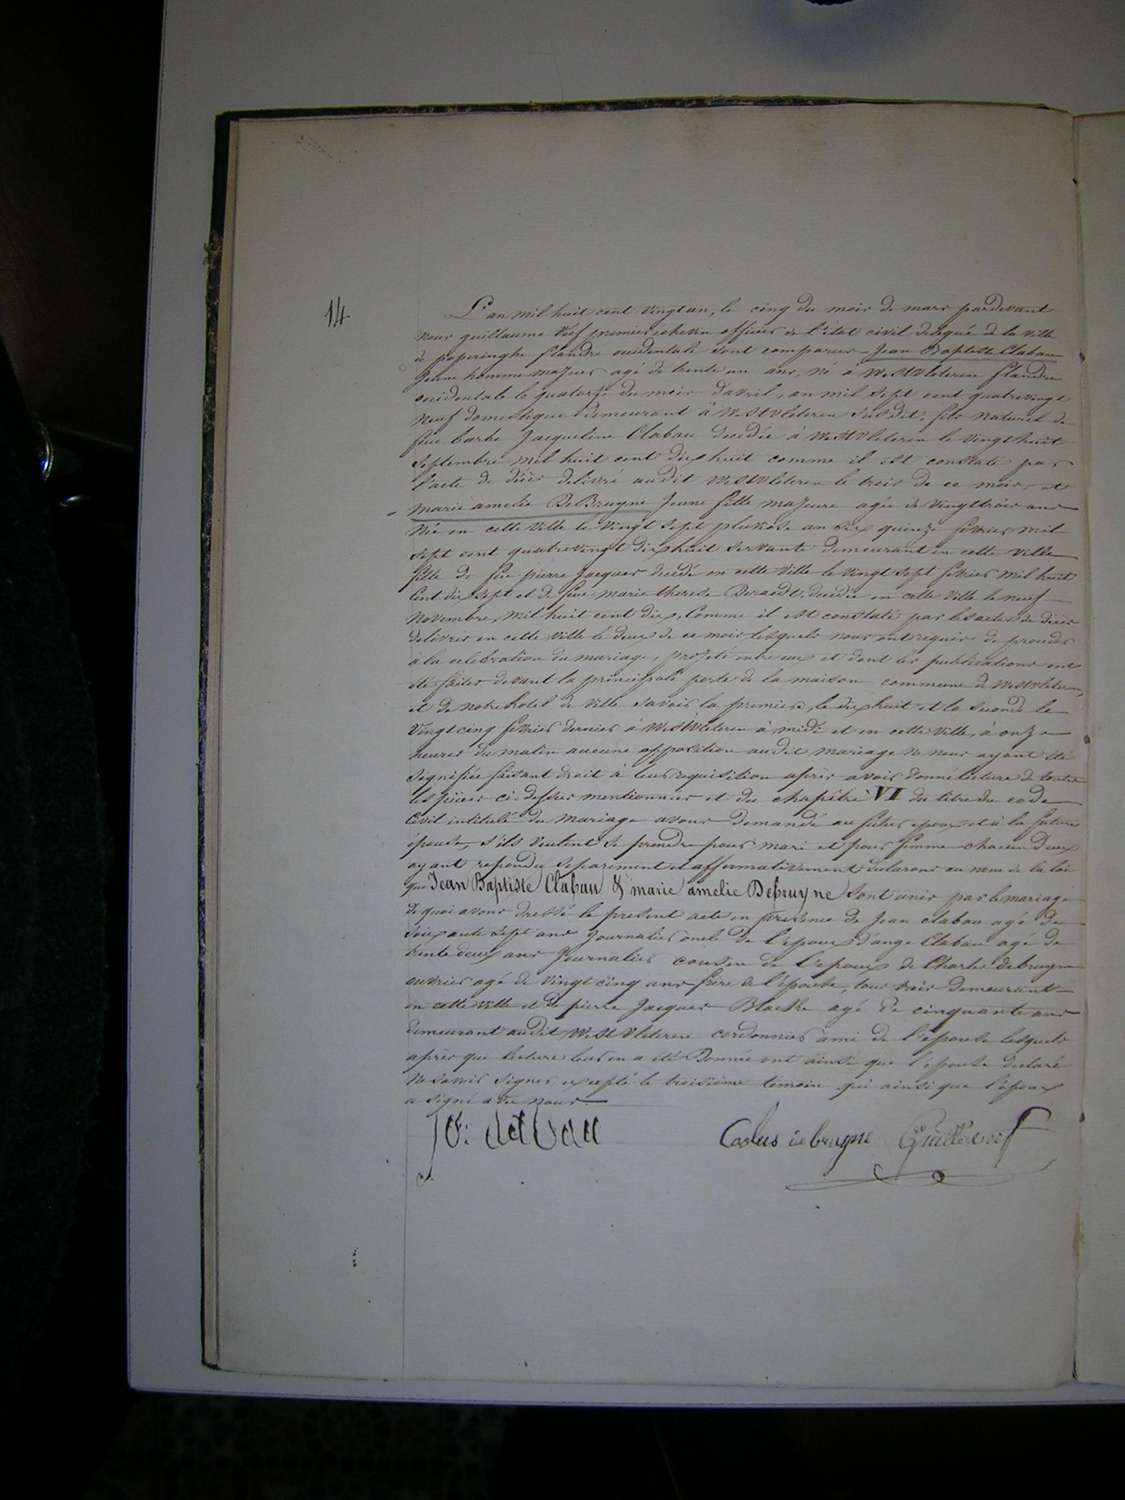 14
L'an mil huit cent vingt un, le cinq du mois de mars pardevant
nous guillaume Vuf premier echevin officier de l'état civil délégué de la ville
de poperinghe flandre occidentale sont comparus Jean Baptiste Clabau
Jeune homme majeur agé de trente un ans, né à Westvleteren flandre
occidentale le quatorze du mois d'avril, an mil sept cent quatrevingt
neuf domestique demeurant à Westvleteren susdit, fils naturel de
feue barbe Jacqueline Clabau decedée à Westvleteren le vingthuit
septembre mil huit cent dixhuit comme il est constaté par
l'acte de décès delivré audit Westvleteren le trois de ce mois, et
marie amelie DeBruyne Jeune fille majeure agée de vingttrois ans
Née en cette ville le vingt sept pluviose an six quinze fevrier mil
sept cent quatrevingt dixhuit servante demeurant en cette ville
fille de feu pierre Jacques decedé en cette ville le vingt sept fevrier mil huit
cent dix sept et de feue marie therese decedée en cette ville le neuf
Novembre, mil huit cent dix, Comme il est constaté par les actes de décès
delivrés en cette ville le deux de ce mois lesquels nous ont requis de proceder
à la celebration du mariage, projeté entre eux et dont les publications ont
été faites devant la principale porte de la maison commune de Westvleteren,
et de notre hotel de ville savoir la premiere, le dixhuit et la seconde le
Vingtcinq fevrier dernier à Westvleteren à midi et en cette ville, à onze
heures du matin aucune opposition audit mariage ne nous ayant été
signifiée faisant droit à leur requisition après avoir donné lecture de toutes
les pièces ci-dessus mentionnées et du chapitre VI du titre du code
Civil intitulé du mariage avons demandé au futur epoux et à la future
épouse, s'ils veulent se prendre pour mari et pour femme chacun d'eux
ayant repondu separement et affirmativement declarons au nom de la loi
que Jean Baptiste Clabau & marie amelie Debruyne sont unis par le mariage
De quoi avons dressé le present acte en presence de Jean clabau agé de
soixante sept ans Journalier oncle de l'epoux d'ange Clabau agé de
trente deux ans Journalier cousin de l'epoux de Charles debruyne
ouvrier agé de vingt cinq ans frere de l'épouse, tous trois demeurant
en cette ville et de pierre Jacques agé de cinquante ans
demeurant audit Westvleteren cordonnier ami de l'epouse lesquels
après que lecture leur en a été Donnée ont ainsi que l'épouse declaré
ne savoir signer excepté le troisième temoin qui ainsi que l'époux
a signé avec nous.
Carolus de bruyne